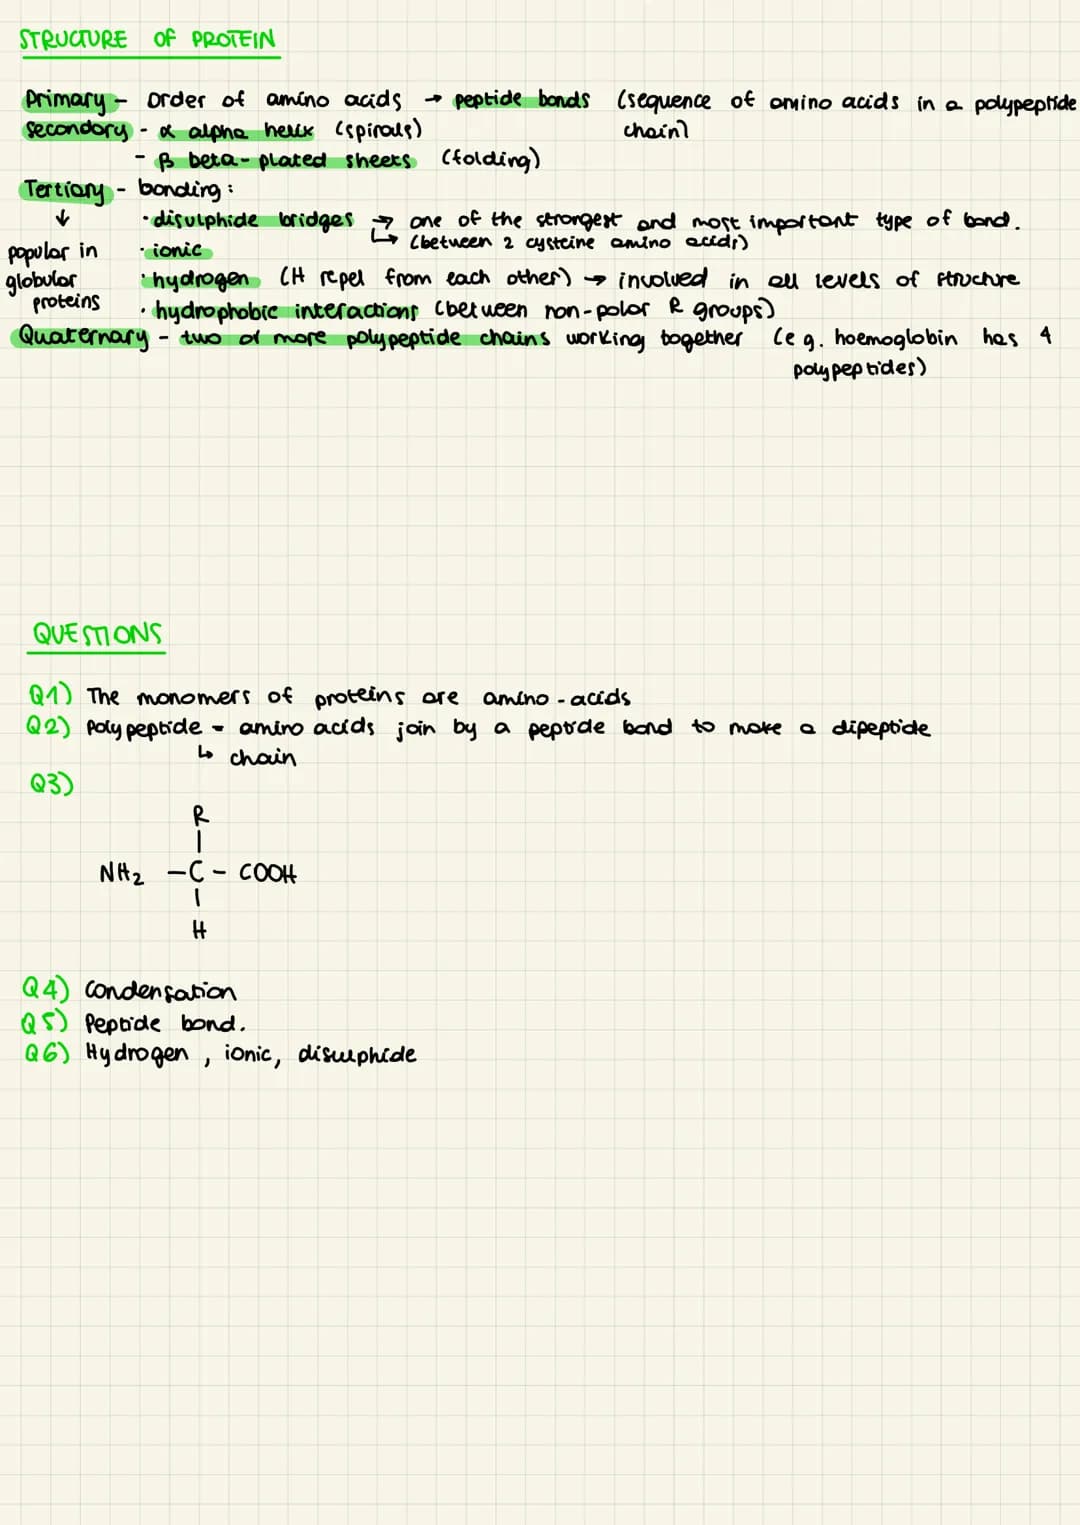 STRUCTURE OF PROTEIN
Primary - Order of amino acids → peptide bonds (sequence of amino acids in a polypeptide chain)
Secondary - α alpha helix (spirals)
- β beta-plated sheets (folding)
Tertiary - bonding:
↓
popular in globular proteins
· disulphide bridges → one of the strongest and most important type of bond.
↳ (between 2 cysteine amino acids)
· ionic
· hydrogen (H repel from each other) → involved in all levels of structure
· hydrophobic interactions (between non-polar R groups)
Quaternary - two or more polypeptide chains working together (e.g. hoemoglobin has 4 polypeptides)
QUESTIONS
Q1) The monomers of proteins are amino-acids
Q2) Polypeptide - amino acids join by a peptide bond to make a dipeptide
↳ chain
Q3)
R
|
NH₂ - C - COOH
|
H
Q4) Condensation
Q5) Peptide bond.
Q6) Hydrogen, ionic, disulphide